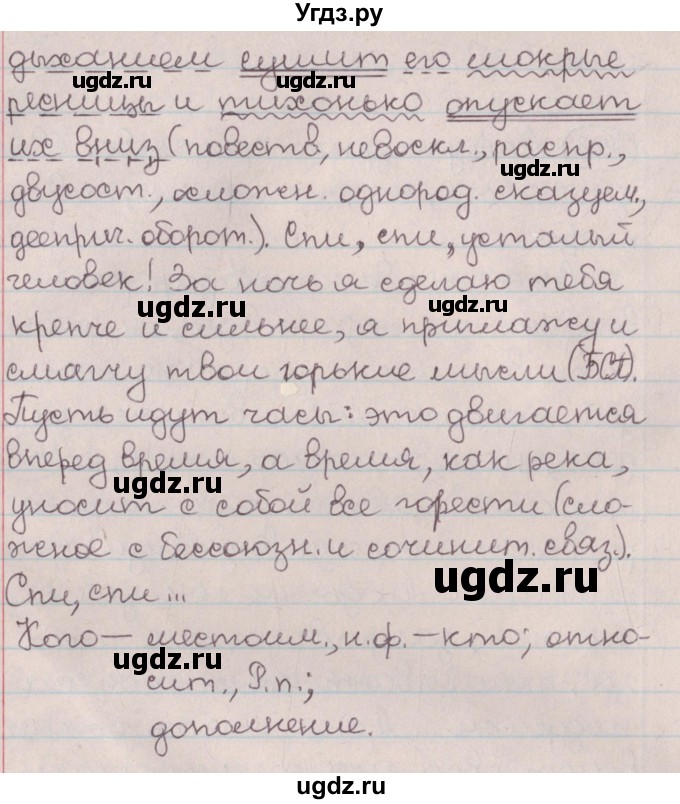 Угдз.ру
дыханием сушит его мокрые
ugdz.ru ugdz.ru
ресницы и тихонько опускает
их вниз (повеств., невоскл., распр.,
ugdz.ru
двусост., ослóжен. однород. сказуем.,
дееприч. оборот.). Спи, спи, усталый
человек! За ночь я сделаю тебя
ugdz.ru ugdz.ru
крепче и сильнее, я приглажу и
смягчу твои горькие мысли (БСП).
Пусть идут часы: это двигается
вперед время, а время, как река,
ugdz.ru ugdz.ru
уносит с собой все горести (сло-
жное с бессоюзн. и сочинит. связ.).
ugdz.ru
Спи, спи ...
Кого — местоим., н.ф. — кто; отно-
ugdz.ru
сит., Р.п.;
дополнение.
ugdz.ru